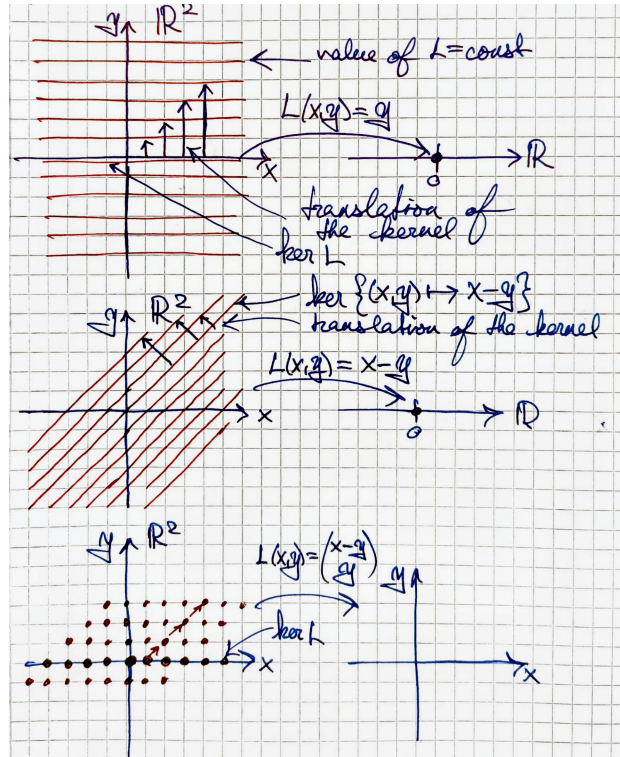 y ℝ²
value of L=const
L(x,y)=y
x
0
ℝ
translation of
the kernel
ker L
y ℝ²
ker {(x,y) ↦ x-y}
translation of the kernel
L(x,y) = x-y
x
0
ℝ
y ℝ²
L(x,y)=(x-y
y)
y
ker L
x
x